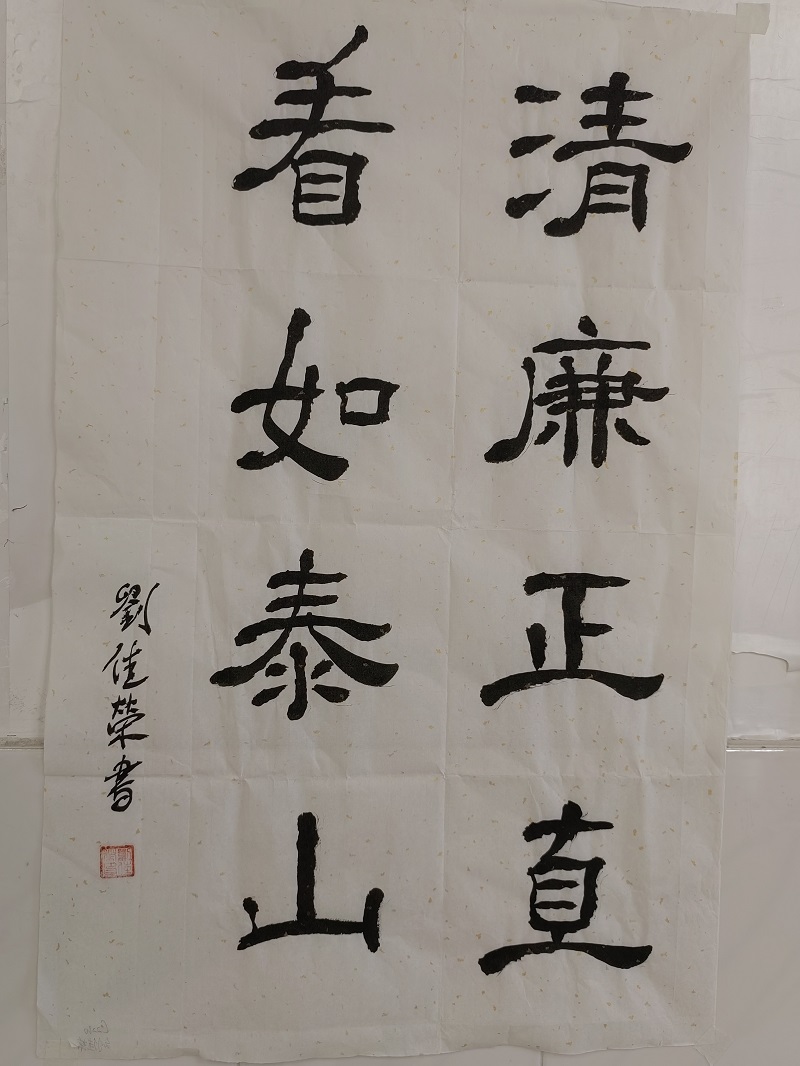 清廉正直
看如泰山
劉佳榮書